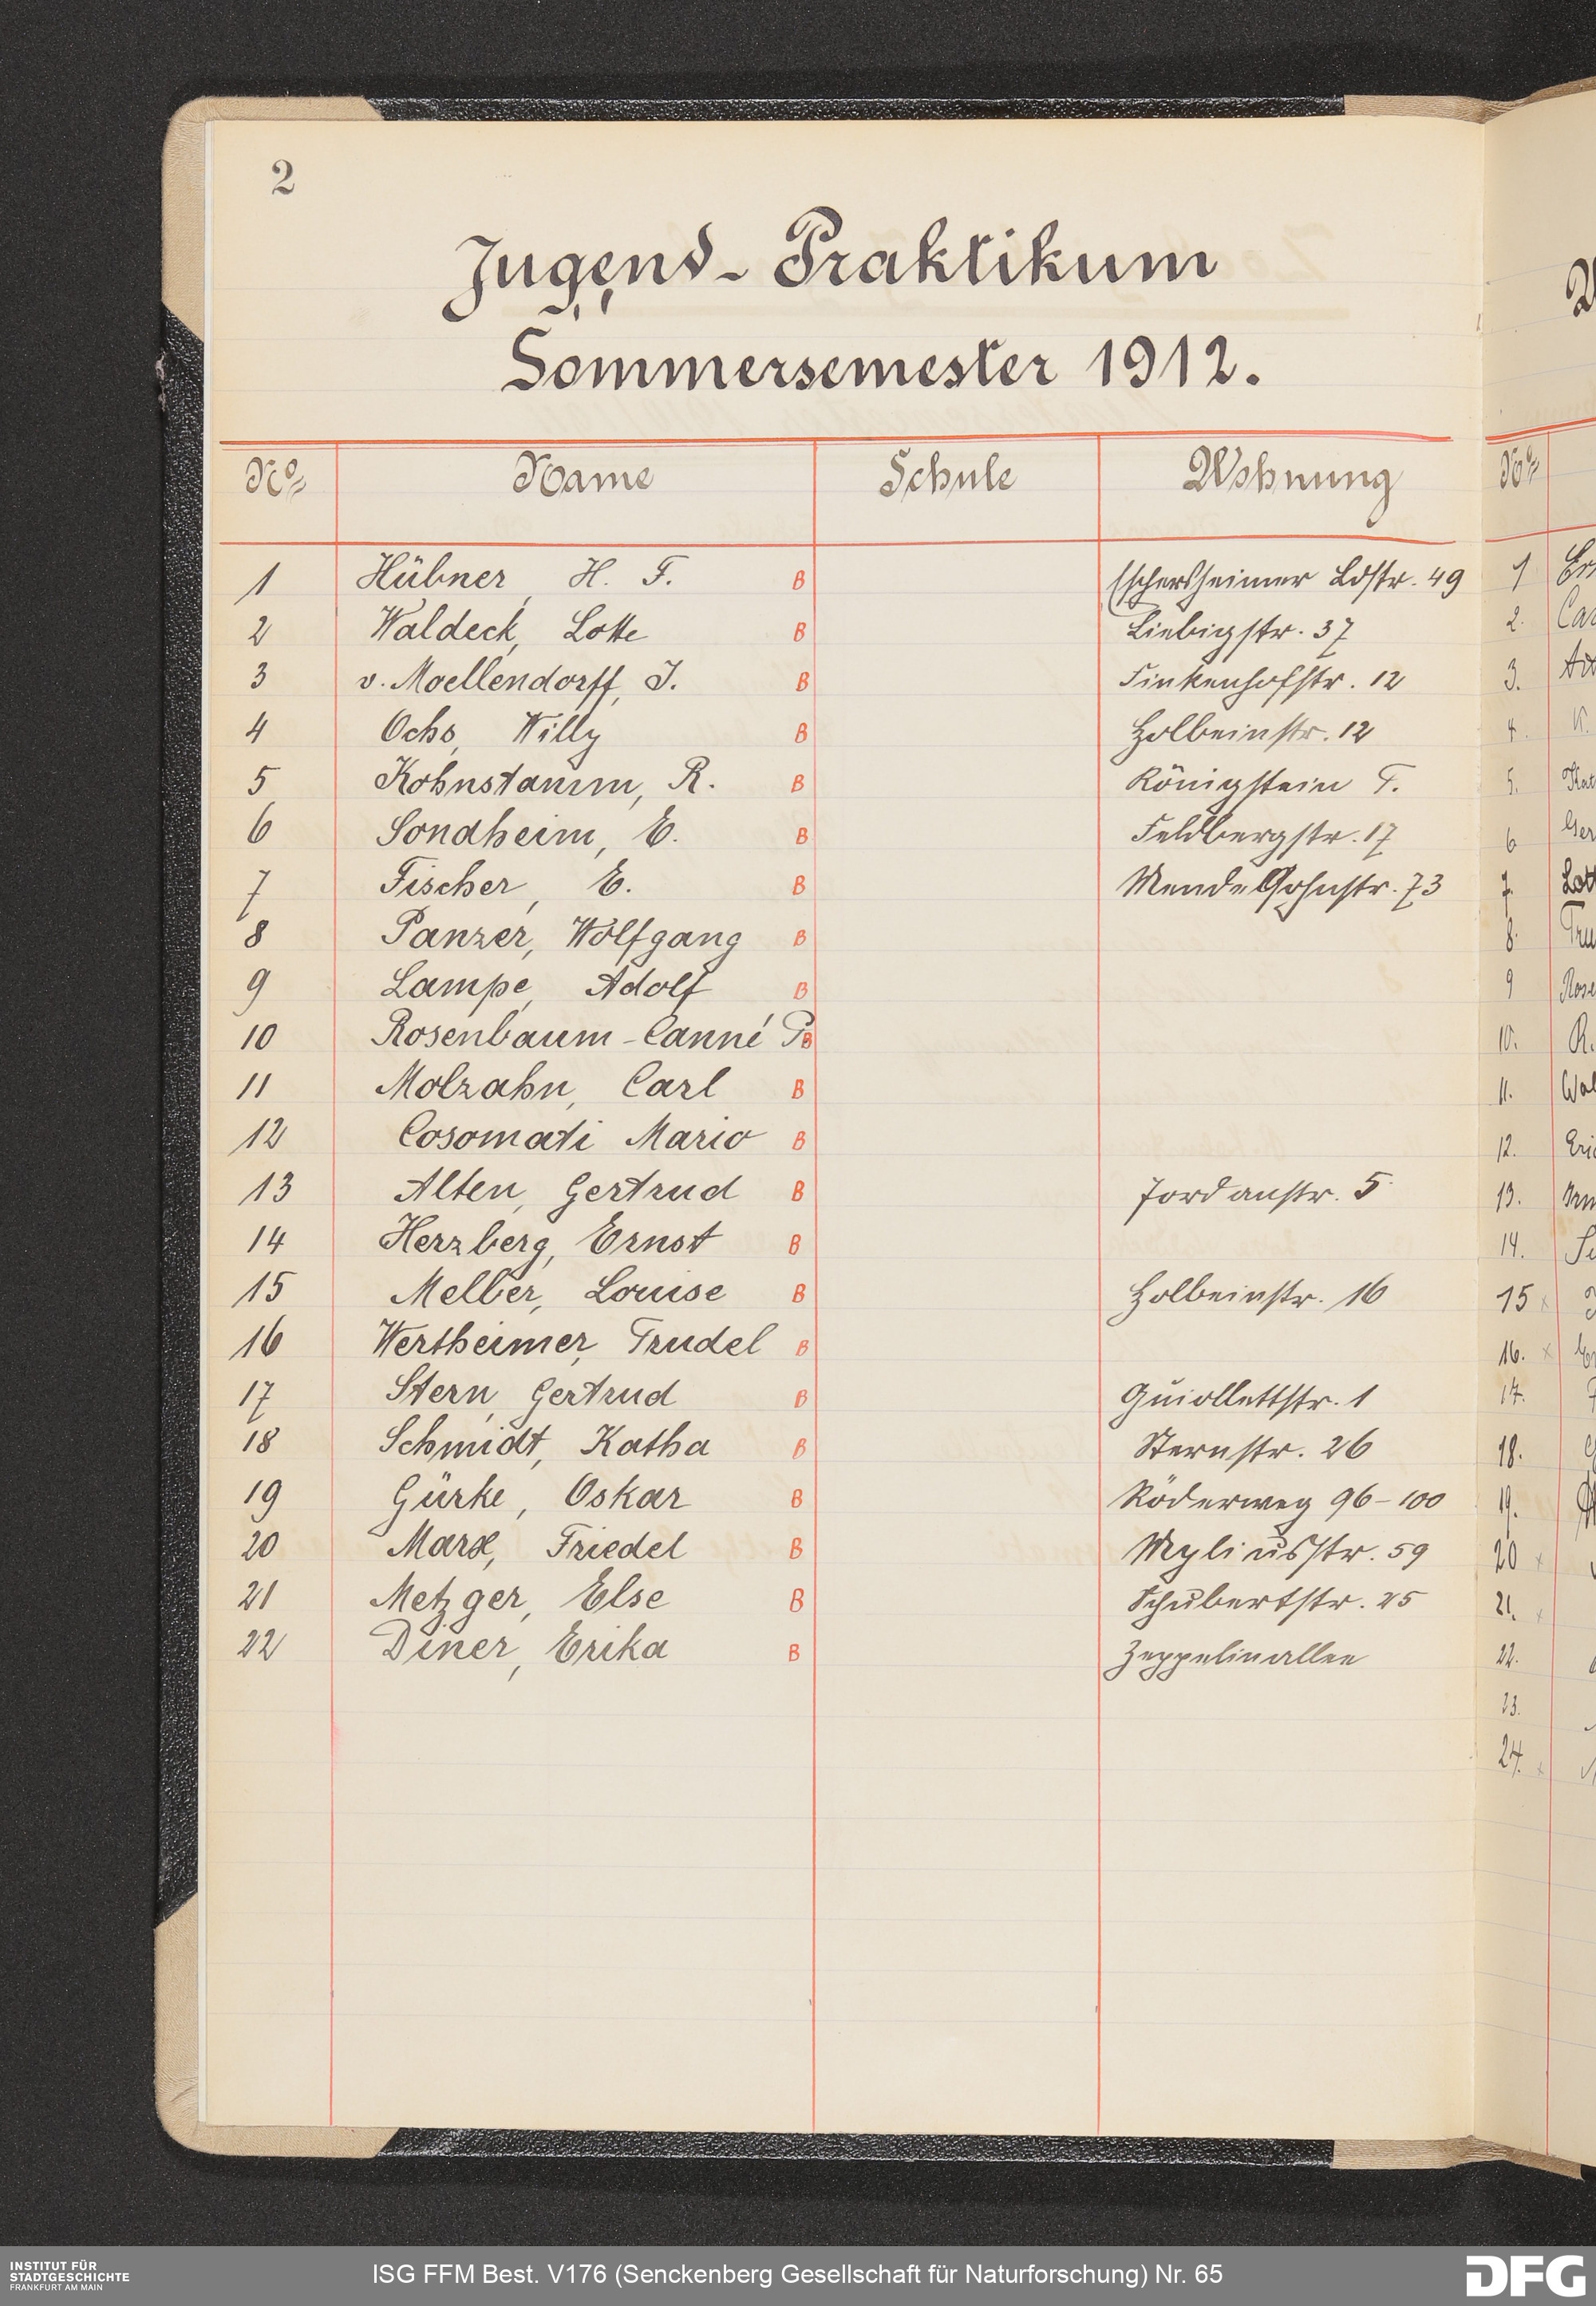 2
Jugend-Praktikum
Sommersemester 1912.
No Name Schule Wohnung
1 Hübner, H. F. B Eschersheimer Ldstr. 49
2 Waldeck, Lotte B Liebigstr. 37
3 v. Moellendorff, J. B Finkenhofstr. 12
4 Ochs, Willy B Holbeinstr. 12
5 Kohnstamm, R. B Königstein T.
6 Sondheim, E. B Feldbergstr. 17
7 Fischer, E. B Mendelsohnstr. 73
8 Panzer, Wolfgang B
9 Lampe, Adolf B
10 Rosenbaum-Canné P. B
11 Molzahn, Carl B
12 Cosomati Mario B
13 Alten, Gertrud B Jordanstr. 5
14 Herzberg, Ernst B
15 Melber, Louise B Holbeinstr. 16
16 Wertheimer, Trudel B
17 Stern, Gertrud B Guiollettstr. 1
18 Schmidt, Katha B Sternstr. 26
19 Gürke, Oskar B Röderweg 96-100
20 Marx, Friedel B Myliusstr. 59
21 Metzger, Else B Schubertstr. 25
22 Diner, Erika B Zeppelinallee
No
1
2.
3.
4.
5.
6
7.
8.
9
10.
11.
12.
13.
14.
15
16.
17.
18.
19.
20
21.
22.
23.
24.
INSTITUT FÜR
STADTGESCHICHTE
FRANKFURT AM MAIN
ISG FFM Best. V176 (Senckenberg Gesellschaft für Naturforschung) Nr. 65
DFG